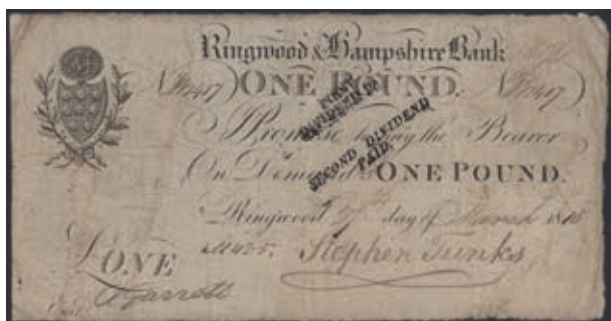 Ringwood & Hampshire Bank
ONE POUND.
FIRST
DIVIDEND
SECOND DIVIDEND
PAID.
I Promise to pay the Bearer
On Demand ONE POUND.
Ringwood day of March
£ONE Stephen Tunks